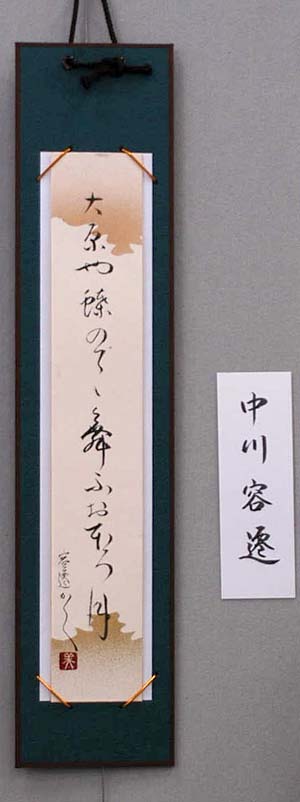 大原や蝶のでゝ舞ふおぼろ月
容遷かく
美
中川容遷